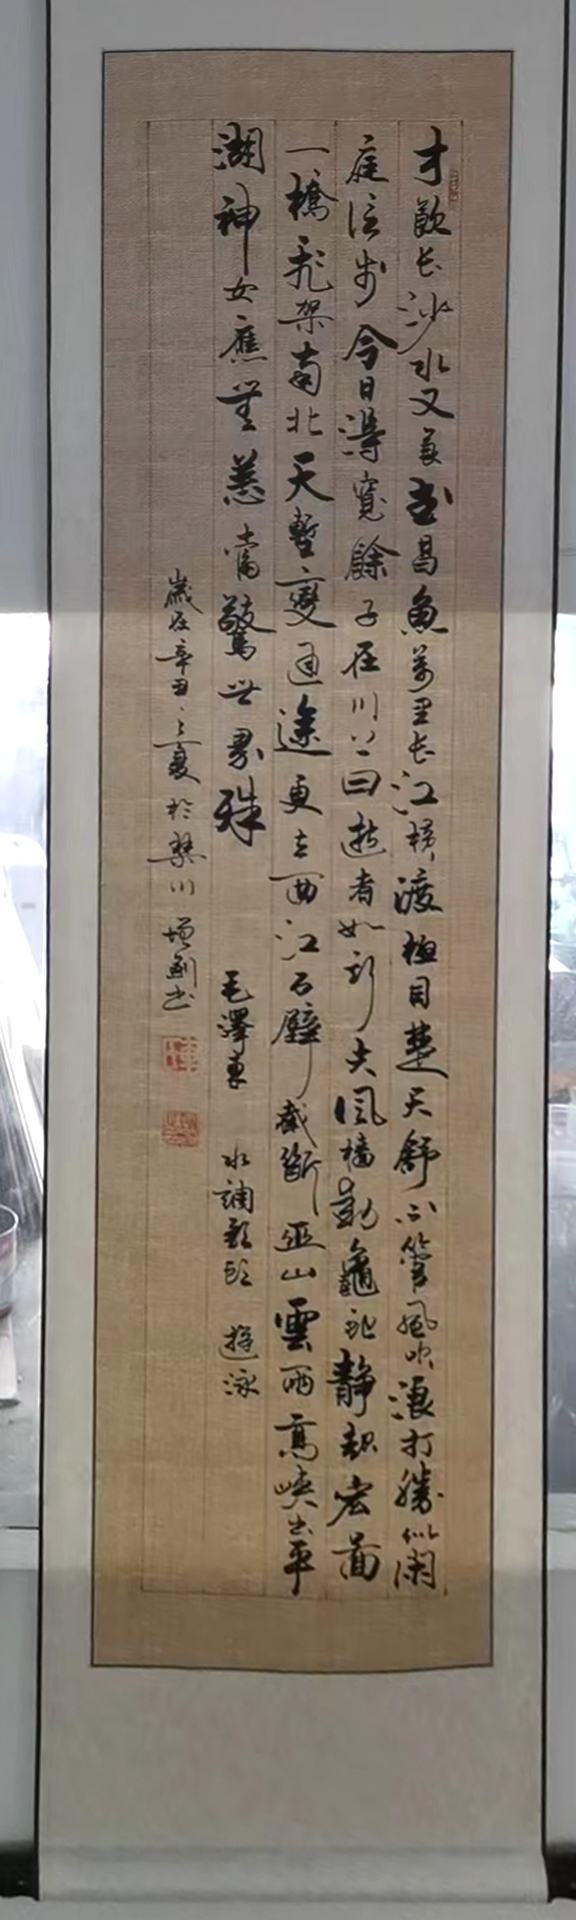 才飲长沙水又食武昌魚萬里长江横渡極目楚天舒不管風吹浪打勝似闲
庭信步今日得寬餘子在川上曰逝者如斯夫風樯動龜蛇静起宏图
一橋飛架南北天塹變通途更立西江石壁截斷巫山雲雨高峡出平
湖神女應無恙當驚世界殊 毛澤東 水調歌頭 遊泳
歲在辛丑之夏於樊川 書